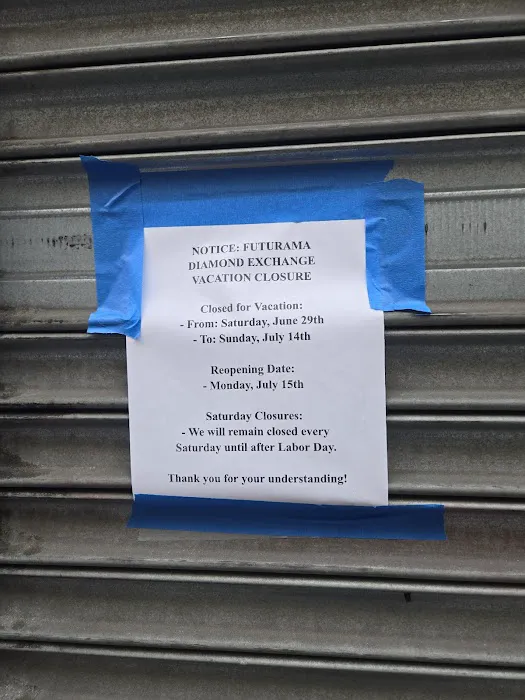 NOTICE: FUTURAMA
DIAMOND EXCHANGE
VACATION CLOSURE
Closed for Vacation:
- From: Saturday, June 29th
- To: Sunday, July 14th
Reopening Date:
- Monday, July 15th
Saturday Closures:
- We will remain closed every
Saturday until after Labor Day.
Thank you for your understanding!